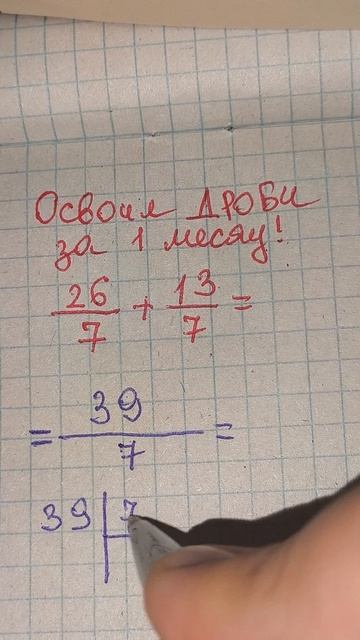 Освоил ДРОБИ
за 1 месяц!
26/7 + 13/7 =
= 39/7 =
39 | 7